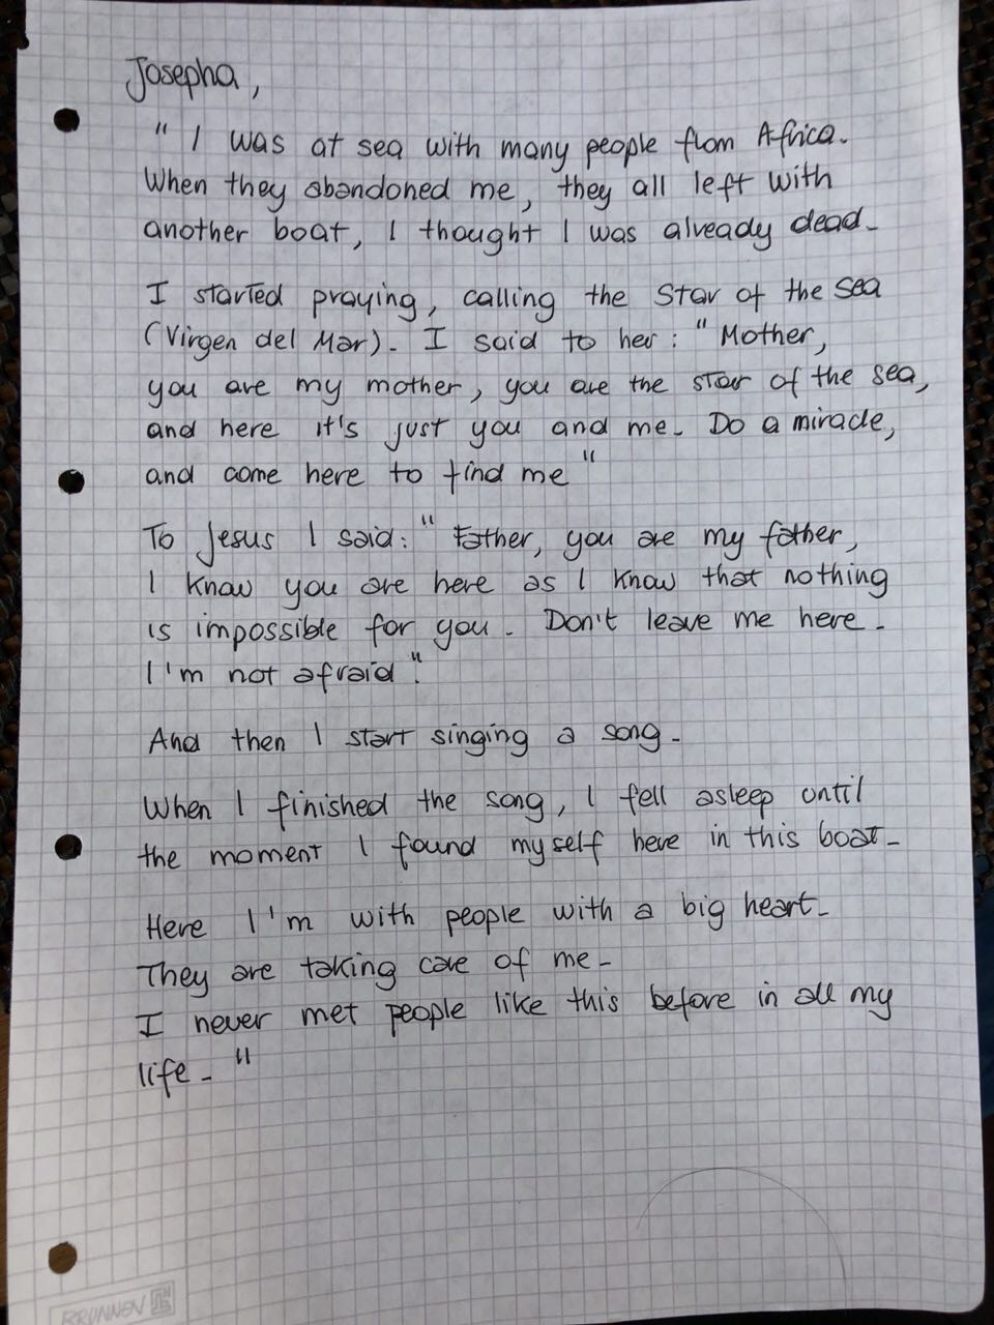 Josepha,
" I was at sea with many people from Africa.
When they abandoned me, they all left with
another boat, I thought I was already dead.
I started praying, calling the Star of the sea
(Virgen del Mar). I said to her: "Mother,
you are my mother, you are the star of the sea,
and here it's just you and me. Do a miracle,
and come here to find me"
To Jesus I said: "Father, you are my father,
I know you are here as I know that nothing
is impossible for you. Don't leave me here.
I'm not afraid".
And then I start singing a song.
When I finished the song, I fell asleep until
the moment I found myself here in this boat.
Here I'm with people with a big heart.
They are taking care of me.
I never met people like this before in all my
life. "
BRUNNEN